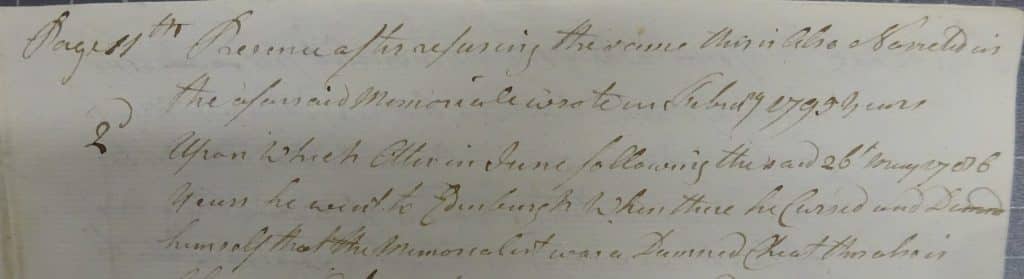 Page 11th Presence after refusing the same this is Also Narreted in
the aforesaid Memoriale wrote in Febry 1795 years
2d Upon Which Otter in June following the said 26t May 1786
Years he went to Edinburgh When there he Cursed and
himself that the Memorialist was a Damned Cheat this also is